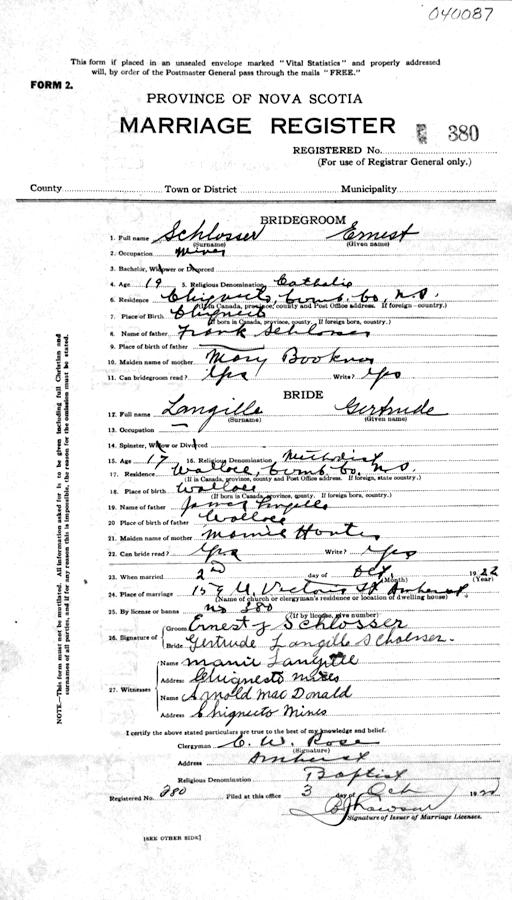 040087
This form if placed in an unsealed envelope marked "Vital Statistics" and properly addressed
will, by order of the Postmaster General pass through the mails "FREE."
FORM 2.
PROVINCE OF NOVA SCOTIA
MARRIAGE REGISTER 380
REGISTERED No.
(For use of Registrar General only.)
County Town or District Municipality
BRIDEGROOM
1. Full name Schlosser Ernest
(Surname) (Given name)
2. Occupation Miner
3. Bachelor, Widower or Divorced
4. Age 19 5. Religious Denomination Catholic
6. Residence Chignecto, Cumb. Co., N.S.
(If in Canada, province, county and Post Office address. If foreign country.)
7. Place of Birth Chignecto
(If born in Canada, province, county. If foreign born, country.)
8. Name of father Frank Schlosser
9. Place of birth of father
10. Maiden name of mother Mary
11. Can bridegroom read? Yes Write? Yes
BRIDE
12. Full name Langille Gertrude
(Surname) (Given name)
13. Occupation —
14. Spinster, Widow or Divorced
15. Age 17 16. Religious Denomination Methodist
17. Residence Wallace, Cumb. Co. N.S.
(If in Canada, province, county and Post Office address. If foreign, state country.)
18. Place of birth Wallace
(If born in Canada, province, county. If foreign born, country.)
19. Name of father James Langille
20. Place of birth of father Wallace
21. Maiden name of mother Mamie
22. Can bride read? Yes Write? Yes
23. When married 2nd day of Oct. 1922
(Month) (Year)
24. Place of marriage 157 Victoria St Amherst
(Name of church or clergyman's residence or location of dwelling house)
25. By license or banns No 380
(If by license, give number)
26. Signature of Groom Ernest J Schlosser
Bride Gertrude Langille Scholsser.
27. Witnesses Name Mamie Langille
Address Chignecto Mines
Name Arnold MacDonald
Address Chignecto Mines
I certify the above stated particulars are true to the best of my knowledge and belief.
Clergyman C. W. Rose
(Signature)
Address Amherst
Religious Denomination Baptist
Registered No. 380 Filed at this office 3 day of Oct 1922
Signature of Issuer of Marriage Licenses.
[SEE OTHER SIDE]
NOTE.—This form must not be mutilated. All information asked for is to be given including full Christian and
surnames of all parties, and if for any reason this is impossible, the reason for the omission must be stated.